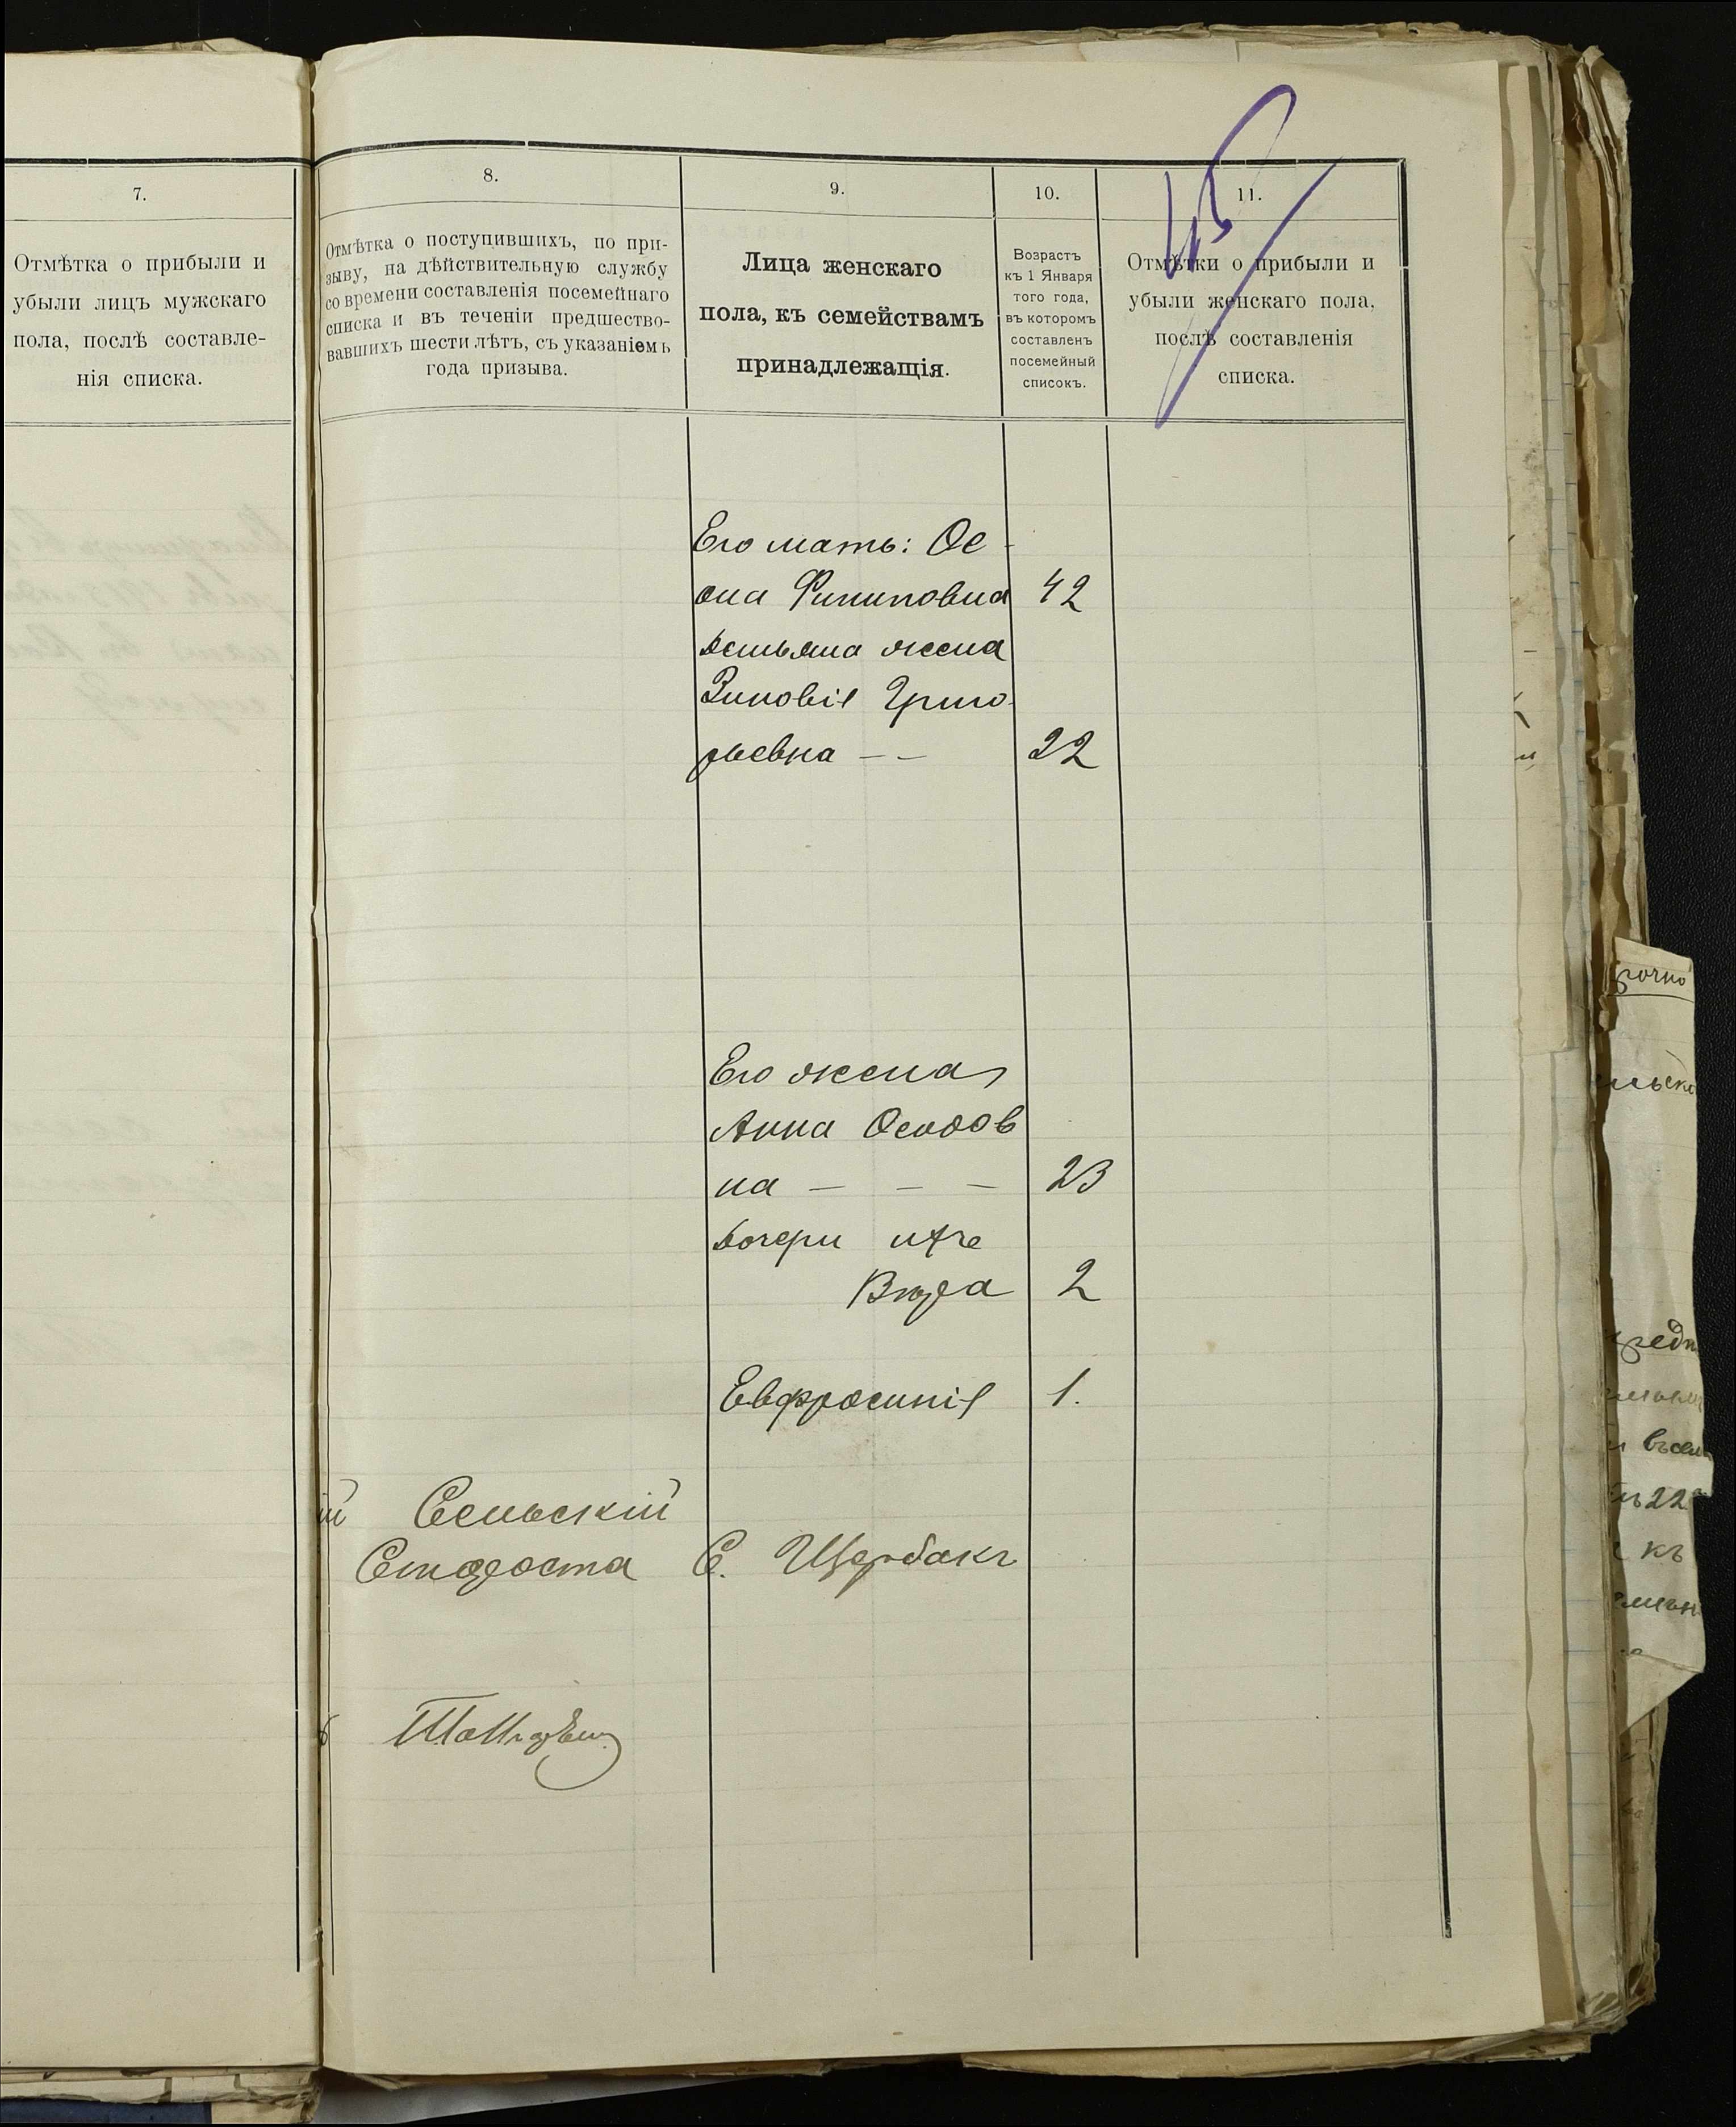 45
7.
Отмѣтка о прибыли и
убыли лицъ мужскаго
пола, послѣ составле-
нія списка.
8.
Отмѣтка о поступившихъ, по при-
зыву, на дѣйствительную службу
со времени составленія посемейнаго
списка и въ теченіи предшество-
вавшихъ шести лѣтъ, съ указаніемъ
года призыва.
9.
Лица женскаго
пола, къ семействамъ
принадлежащія.
10.
Возрастъ
къ 1 Января
того года,
въ которомъ
составленъ
посемейный
списокъ.
11.
Отмѣтки о прибыли и
убыли женскаго пола,
послѣ составленія
списка.
Его мать: Ѳе-
она Филиповна 42
жена
Зиновія Григо-
рьевна — — 22
Его жена
Анна Ѳеодов
на — — — 23
дочери ихъ
Вѣра 2
Евфросинія 1.
ій Сельскій
Староста С. Щербакъ
рочно
льско
къ